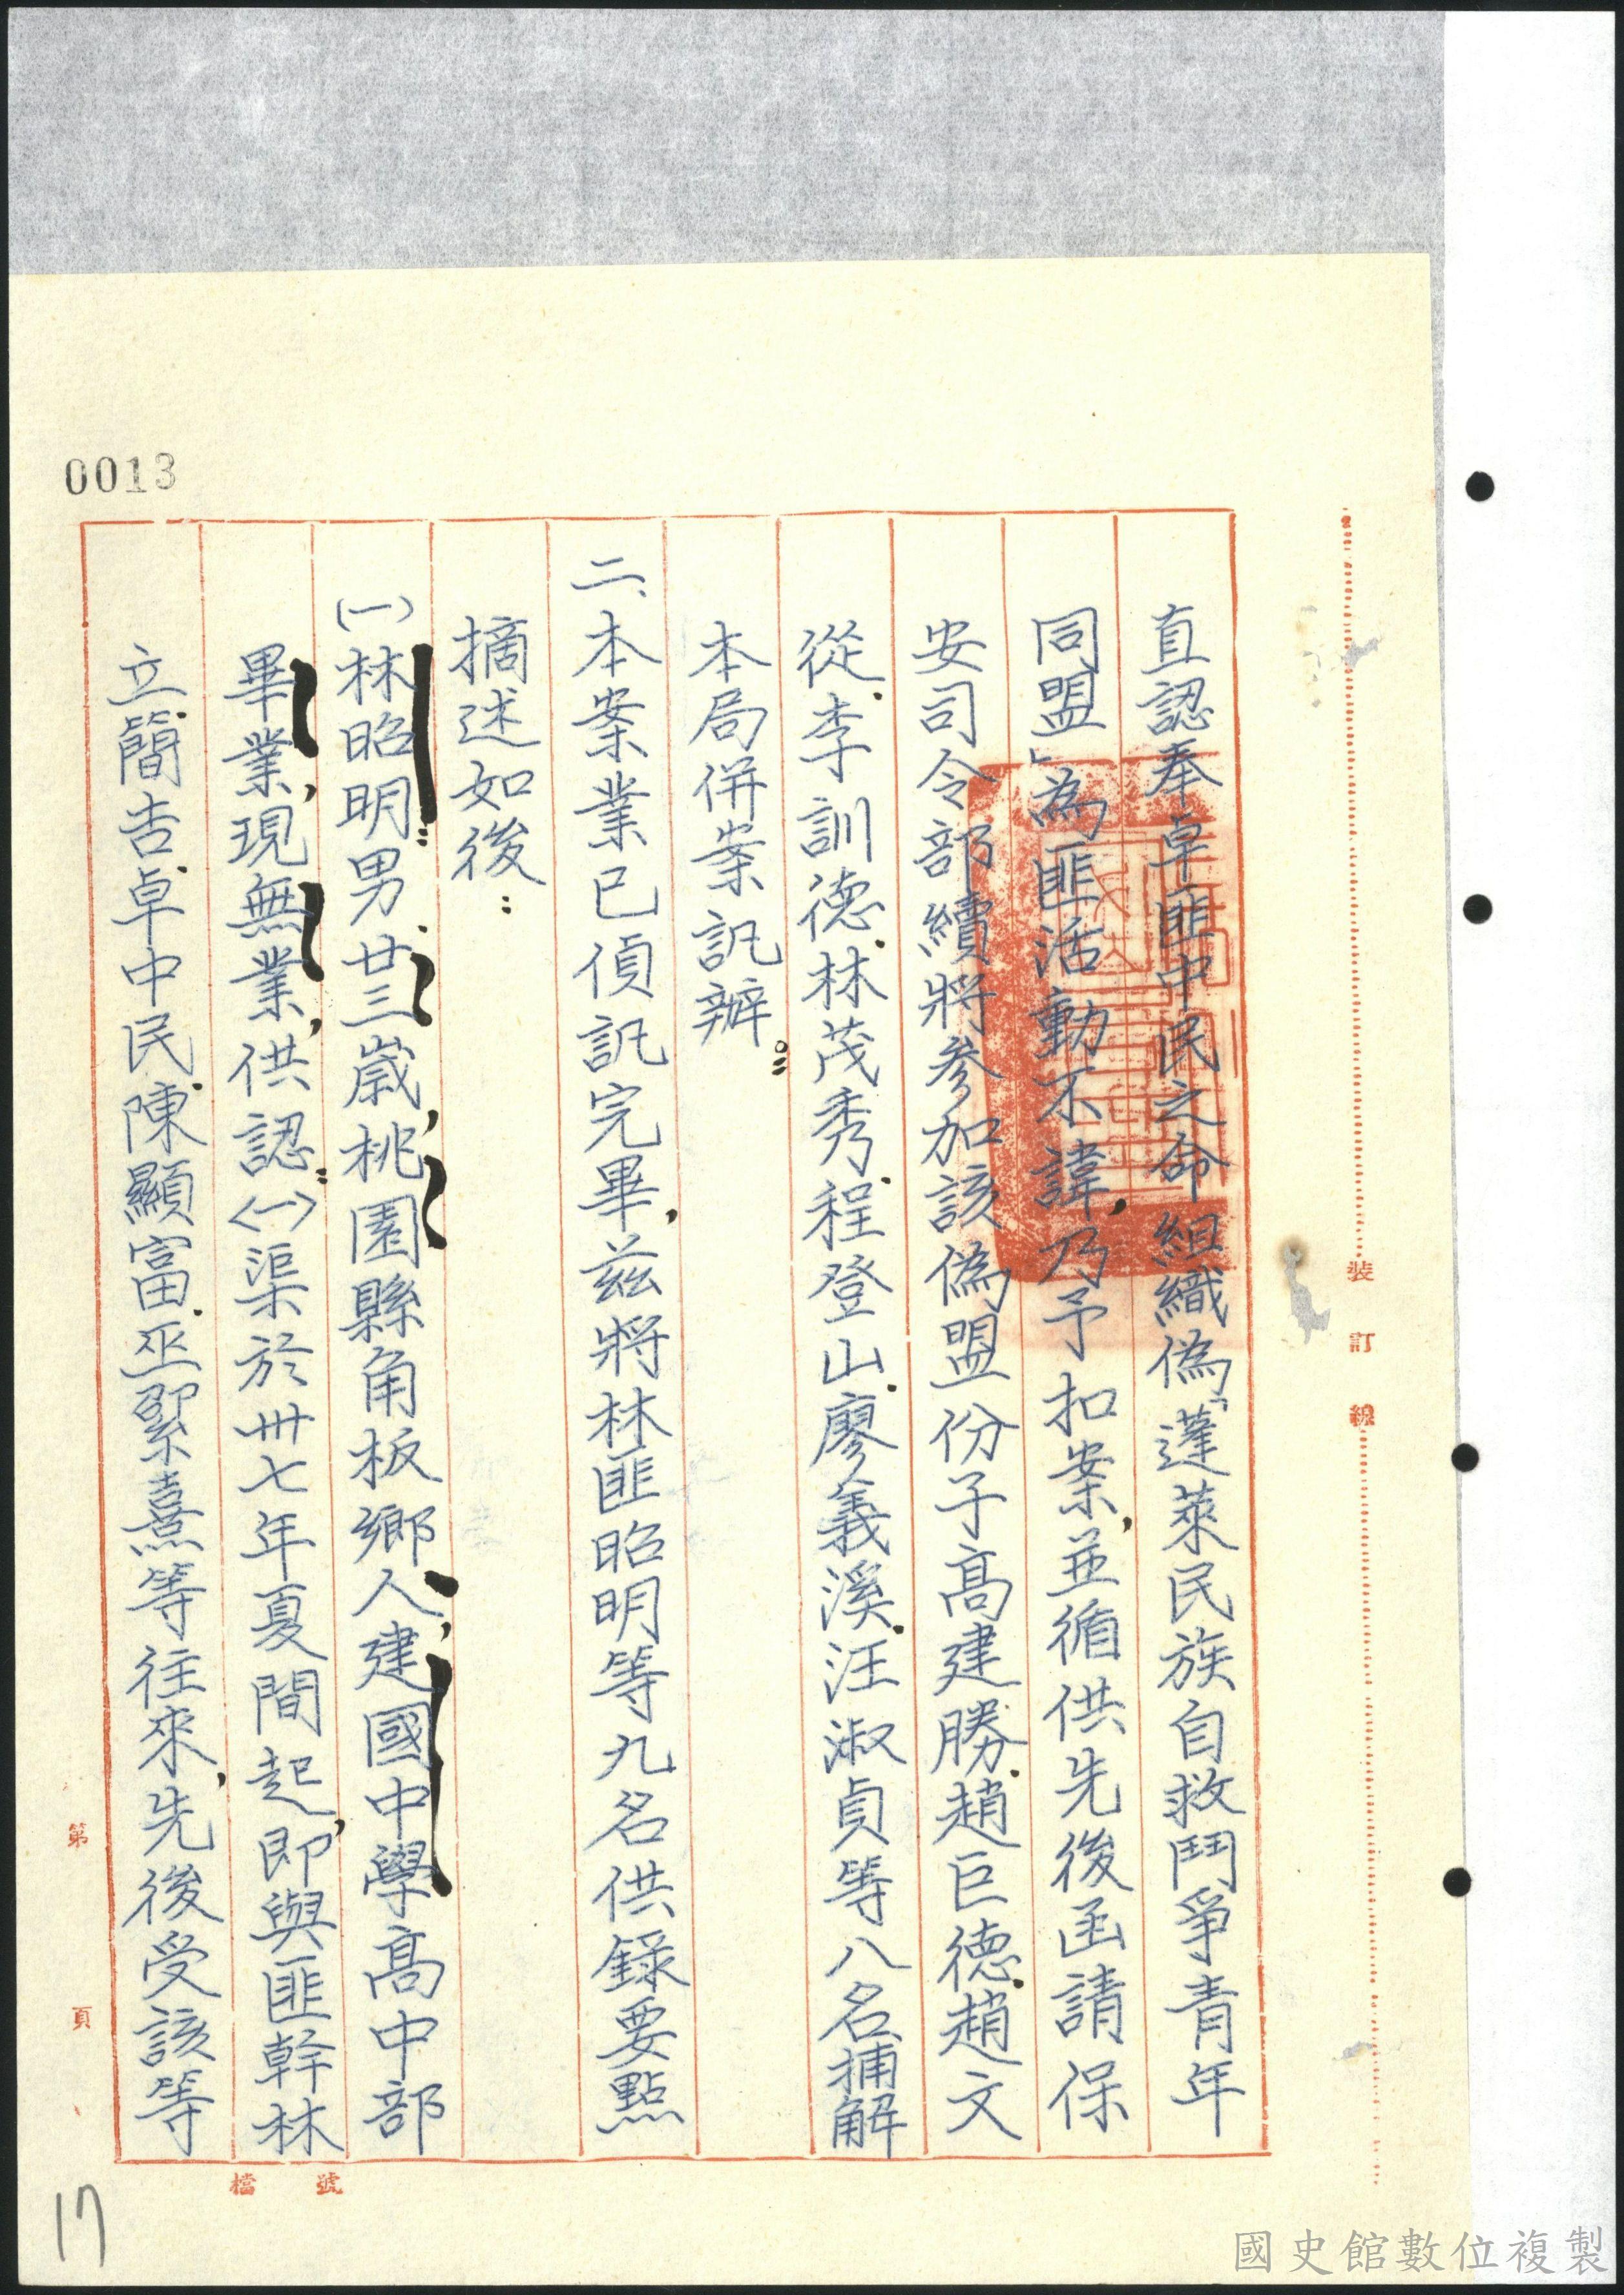 0013
直認奉卓匪中民之命組織偽「蓬萊民族自救鬥爭青年
同盟」為匪活動不諱,乃予扣案,並循供先後函請保
安司令部續將參加該偽盟份子高建勝.趙巨德.趙文
從.李訓德.林茂秀.程登山.廖義溪.汪淑貞等八名捕解
本局併案訊辦。
二、本案業已偵訊完畢,茲將林匪昭明等九名供錄要點
摘述如後:
(一)林昭明:男.廿三歲,桃園縣角板鄉人,建國中學高中部
畢業,現無業,供認:〈一〉渠於卅七年夏間起,即與匪幹林
立.簡吉.卓中民.陳顯富.巫絜熹等往來,先後受該等
裝訂線
第 頁
檔號
17
國史館數位複製